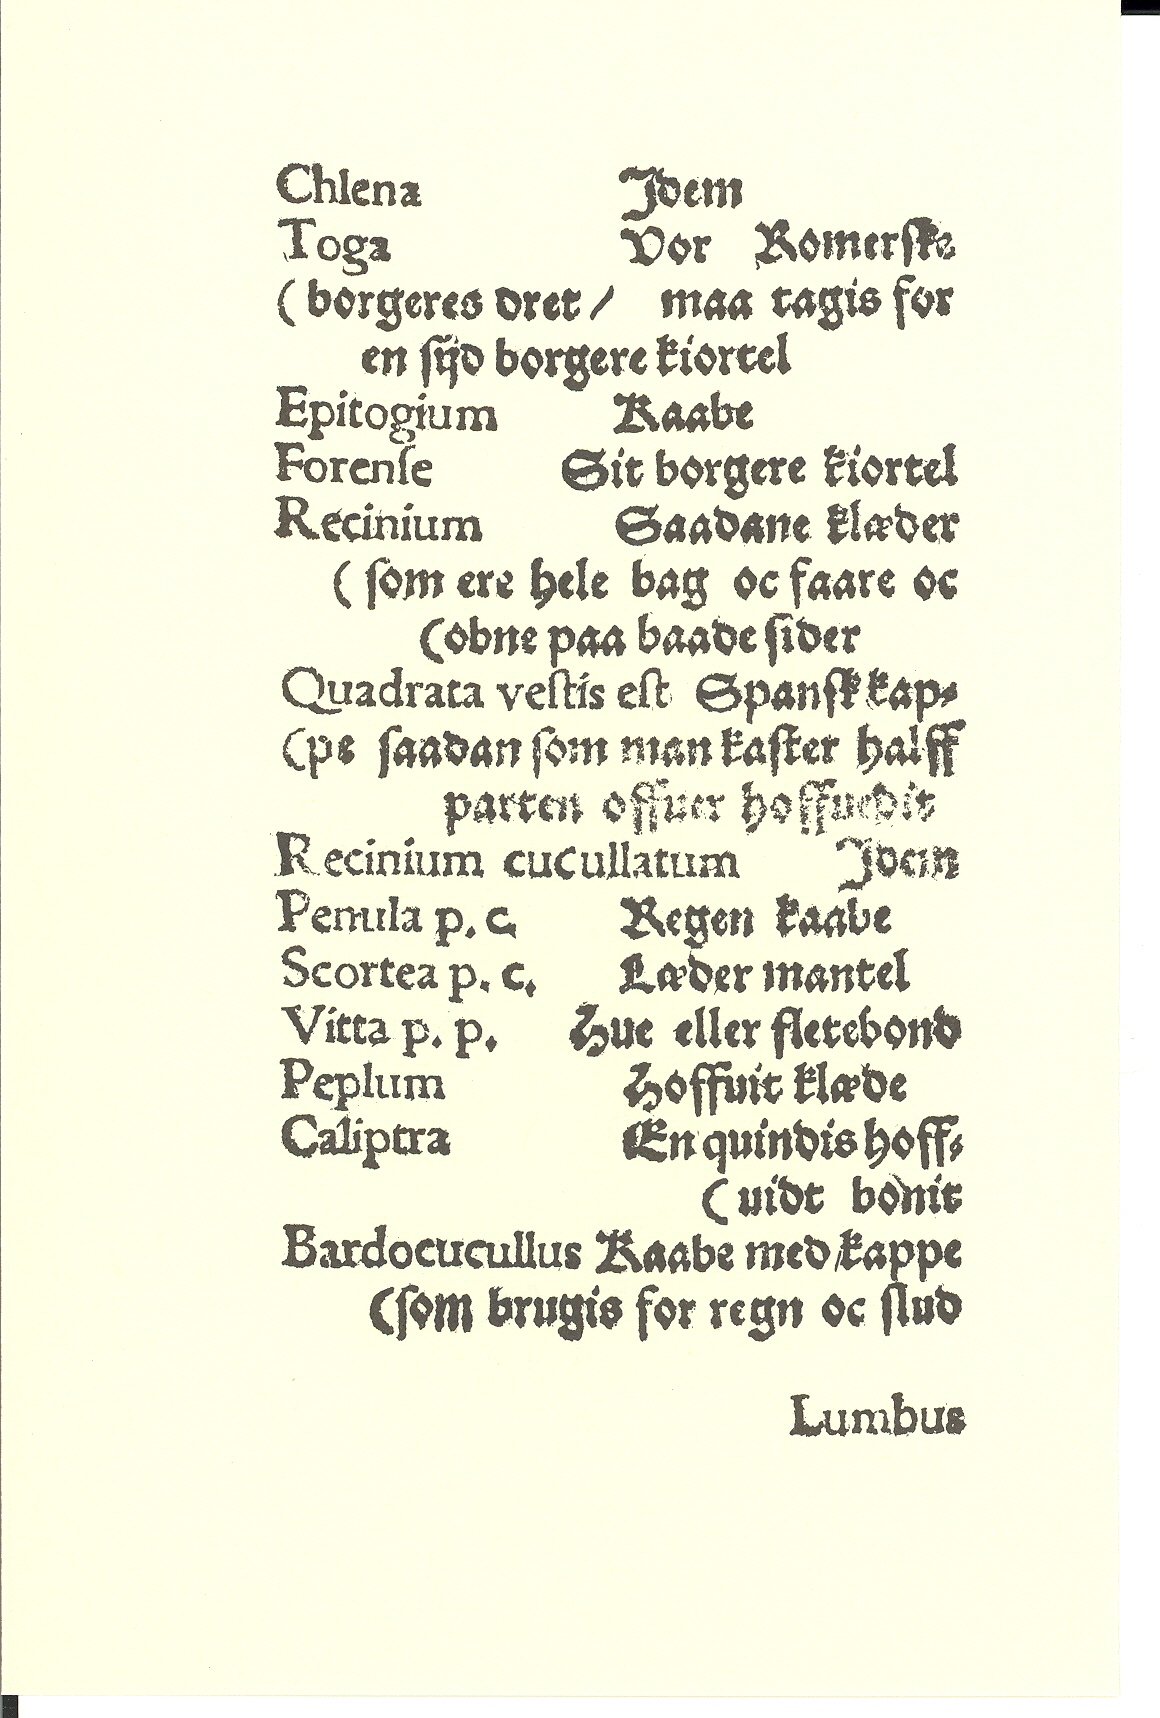 Chlena Idem
Toga Vor Romerſke
( borgeres dret / maa tagis for
en ſijd borgere kiortel
Epitogium Kaabe
Forenſe Sit borgere kiortel
Recinium Saadane klæder
( ſom ere hele bag oc faare oc
(obne paa baade ſider
Quadrata veſtis eſt Spanſk kap⸗
(pe ſaadan ſom man kaſter halff
parten offuer hoffuedit
Recinium cucullatum Idem
Penula p. c. Regen kaabe
Scortea p. c. Læder mantel
Vitta p. p. Hue eller fletebond
Peplum Hoffuit klæde
Caliptra En quindis hoff⸗
( uidt bonit
Bardocucullus Kaabe med kappe
(ſom brugis for regn oc ſlud
Lumbus